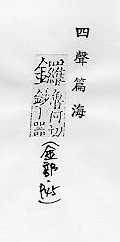 四聲篇海
鑼魯何切
鈔丨器
(金部
P45)